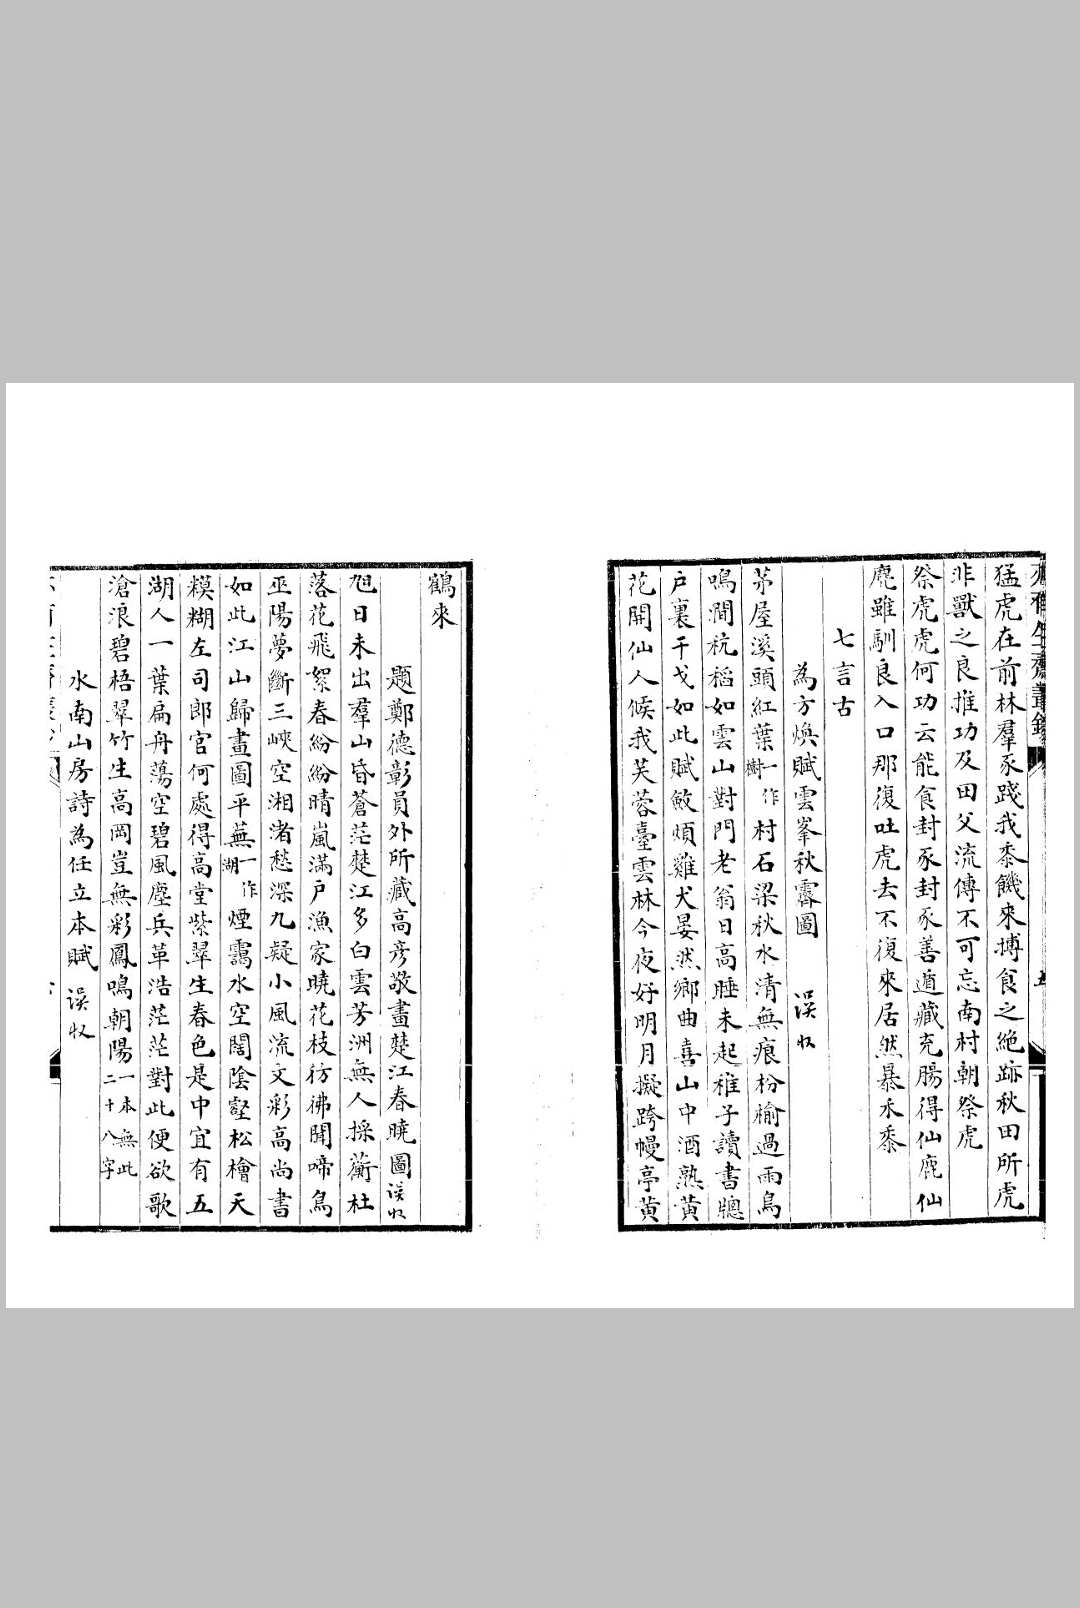 猛虎在前林羣豕踐我黍饑來搏食之絶跡秋田所虎
非獸之良推功及田父流傳不可忘南村朝祭虎
祭虎虎何功云能食封豕封豕善遁藏充腸得仙鹿仙
鹿雖馴良入口那復吐虎去不復來居然暴禾黍
七言古
為方煥賦雲峯秋霽圖 誤收
茅屋溪頭紅葉一作樹村石梁秋水清無痕枌榆過雨鳥
鳴澗秔稻如雲山對門老翁日高睡未起稚子讀書牕
戸裏干戈如此賦斂煩雞犬晏然鄉曲喜山中酒熟黄
花開仙人候我芙蓉臺雲林今夜好明月擬跨幔亭黄
鶴來
題鄭德彰員外所藏高彦敬畫楚江春曉圖誤收
旭日未出羣山昏蒼茫楚江多白雲芳洲無人採蘅杜
落花飛絮春紛紛晴嵐滿戸漁家曉花枝彷彿開啼鳥
巫陽夢斷三峽空湘渚愁深九疑小風流文彩高尚書
如此江山歸畫圖平蕪一作湖煙靄水空闊陰壑松檜天
糢糊左司郎官何處得高堂紫翠生春色是中宜有五
湖人一葉扁舟蕩空碧風塵兵革浩茫茫對此便欲歌
滄浪碧梧翠竹生高岡豈無彩鳳鳴朝陽一本無此二十八字
水南山房詩為任立本賦 誤收